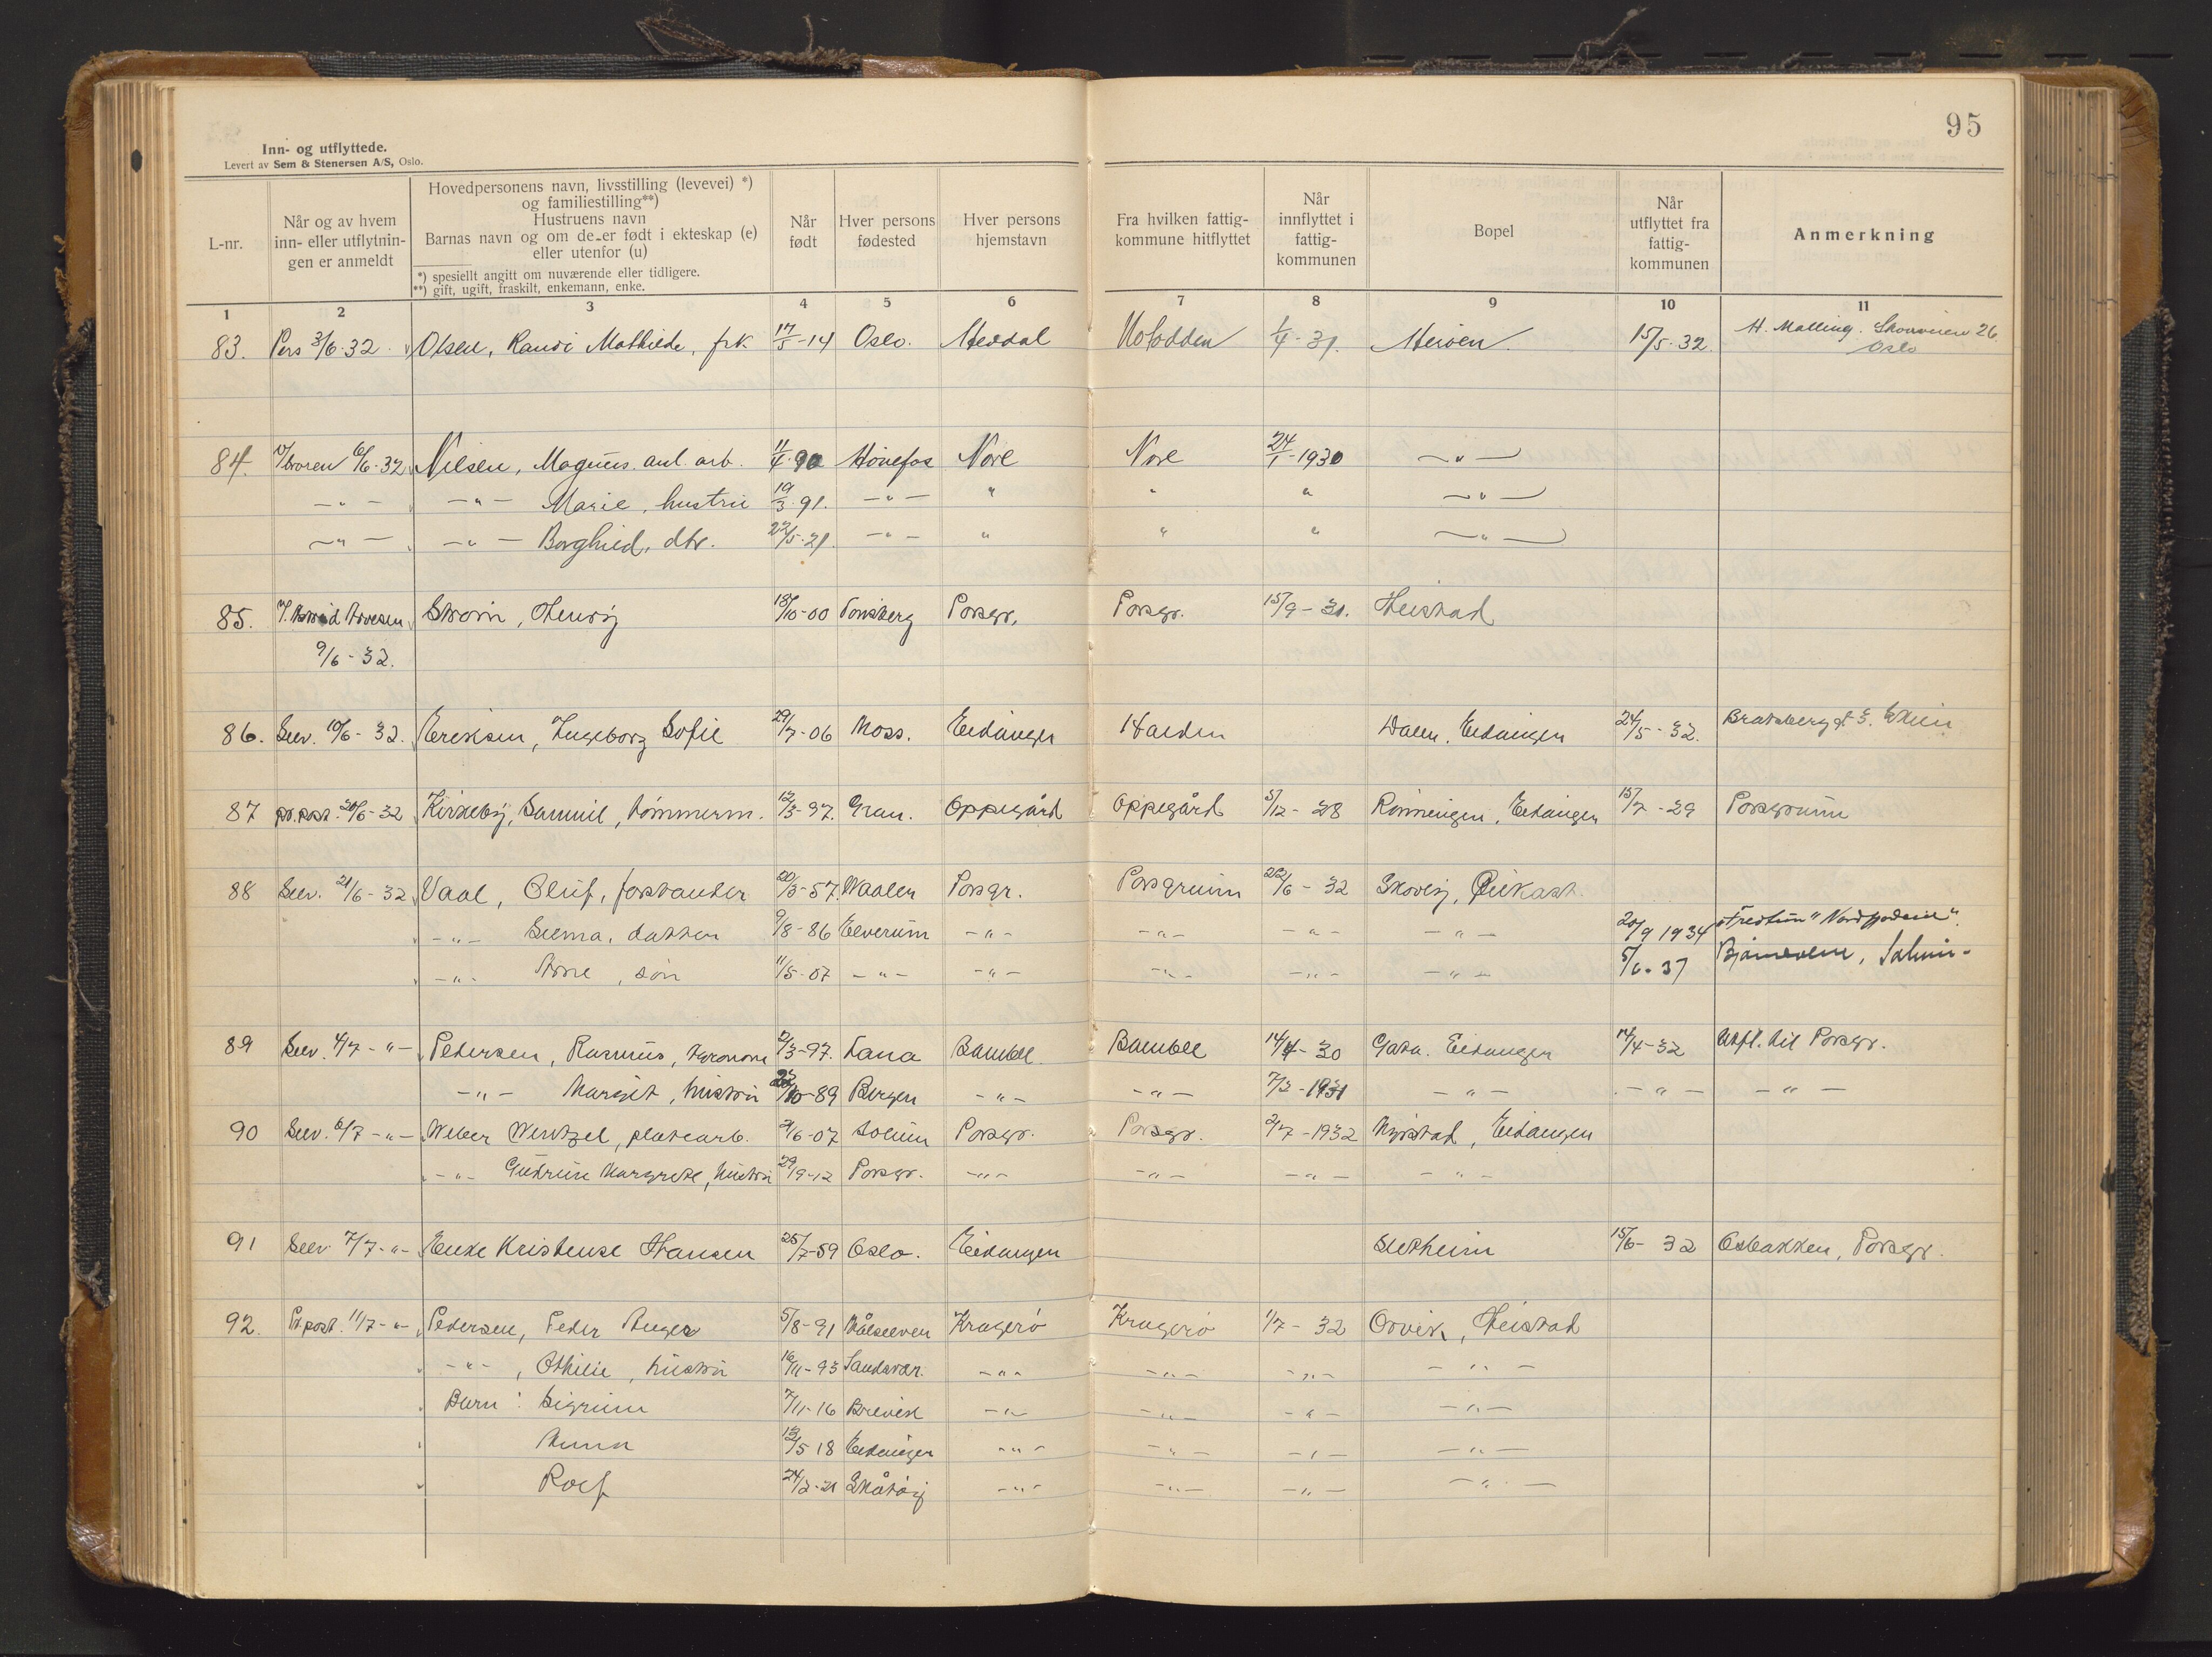 95
Inn- og utflyttede.
Levert av Sem & Stenersen A/S, Oslo.
L-nr. | Når og av hvem inn- eller utflytnin- gen er anmeldt | Hovedpersonens navn, livsstilling (levevei) *) og familiestilling**) Hustruens navn Barnas navn og om de er født i ekteskap (e) eller utenfor (u) *) spesiellt angitt om nuværende eller tidligere. **) gift, ugift, fraskilt, enkemann, enke. | Når født | Hver persons fødested | Hver persons hjemstavn | Fra hvilken fattig- kommune hitflyttet | Når innflyttet i fattig- kommunen | Bopel | Når utflyttet fra fattig- kommunen | Anmerkning
1 2 3 4 5 6 7 8 9 10 11
83. Pers 3/6-32 Olsen, Randi Mathilde, frk 17/5-14 Oslo. Heddal Notodden 1/4-31. Herøen. 15/5-32. H. Malling. Skovveien 26
Oslo
84. 6/6-32 Nilsen, Magnus. anl. arb. 11/4-90 Hønefos Nore Nore 24/1-1930 -"-
-"- -"- Marie, hustru 19/3-91. -"- " " " -"-
-"- -"- Borghild, dtr. 22/5-21. -"- " " " -"-
85. Strøm, Henry 18/10-00 Tønsberg Porsgr. Porsgr. 15/9-31. Heistad
9/6-32.
86. Selv. 10/6-32. Eriksen, Ingeborg Sofie 29/7-06 Moss. Eidanger Halden Dalen, Eidanger 24/5-32. Bratsberggt 3. Skien
87 pr. post. 20/6-32 Kirkeby, Samuel, tømmerm. 12/3-97. Gran. Oppegård Oppegård 5/12-28 Rønningen, Eidanger 15/7-29 Porsgrunn
88 Selv. 21/6-32 Vaal, Oluf, forstander 20/3-57. Vaaler Porsgr. Porsgrunn 22/6-32 Skovly,
-"- Selma, datter 9/8-86 Elverum -"- -"- -"- -"- 20/9 1934
-"- Arne, søn 11/5-07 -"- -"- -"- -"- -"- 5/6-37
89 Selv. 4/7-"- Pedersen, Rasmus, agronom 2/3-97. Fana Bamble. Bamble 14/4-30 Gata. Eidanger 14/4-32 Utfl. til Porsgr.
-"- Margit, hustru 22/10-89 Bergen -"- -"- 7/3-1931 -"- -"- -"-
90 Selv. 6/7-"- Weber Wentzel, platearb. 2/6-07 Solum Porsgr. Porsgr. 2/7-1932 Nystad, Eidanger
-"- Gudrun Margrete, hustru 29/9-12 Porsgr. -"- -"- -"- -"-
91 Selv 7/7-"- Enke Kristense Hansen 25/7-59 Oslo. Eidanger Sletheim 15/6-32 Osebakken, Porsgr.
92. Pr post. 11/7-"- Pedersen, Peder Anger 5/8-91 Målselven Kragerø Kragerø 1/7-32 Orvik, Heistad
-"-, Othilie, hustru 16/11-93 Sandsvær. -"- -"- -"- -"-
Barn: Sigrunn 7/11-16 Brevik -"- -"- -"- -"-
Anna 13/5 18 Eidanger -"- -"- -"- -"-
Rolf 24/2-21 Skåtøy -"- -"- -"- -"-